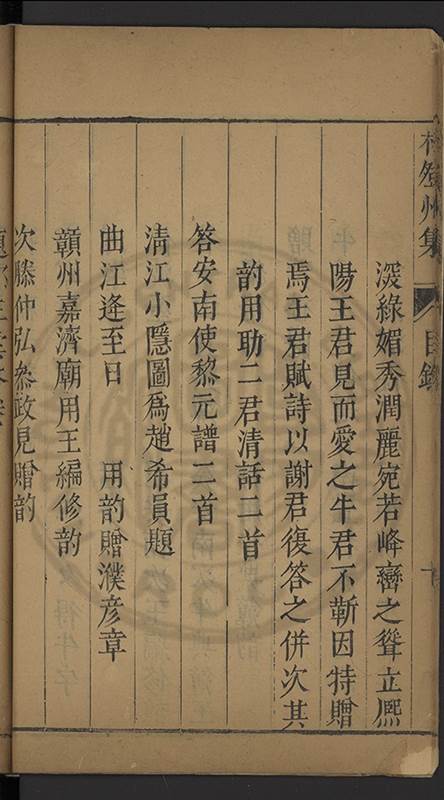 林登州集 目錄
深綠媚秀潤麗宛若峰巒之聳立熈
陽王君見而愛之牛君不靳因特贈
焉王君賦詩以謝君復答之併次其
韵用助二君清話二首
答安南使黎元譜二首
清江小隱圖爲趙希員題
曲江逢至日 用韵贈濮彦章
贛州嘉濟廟用王編修韵
次滕仲弘叅政見贈韵